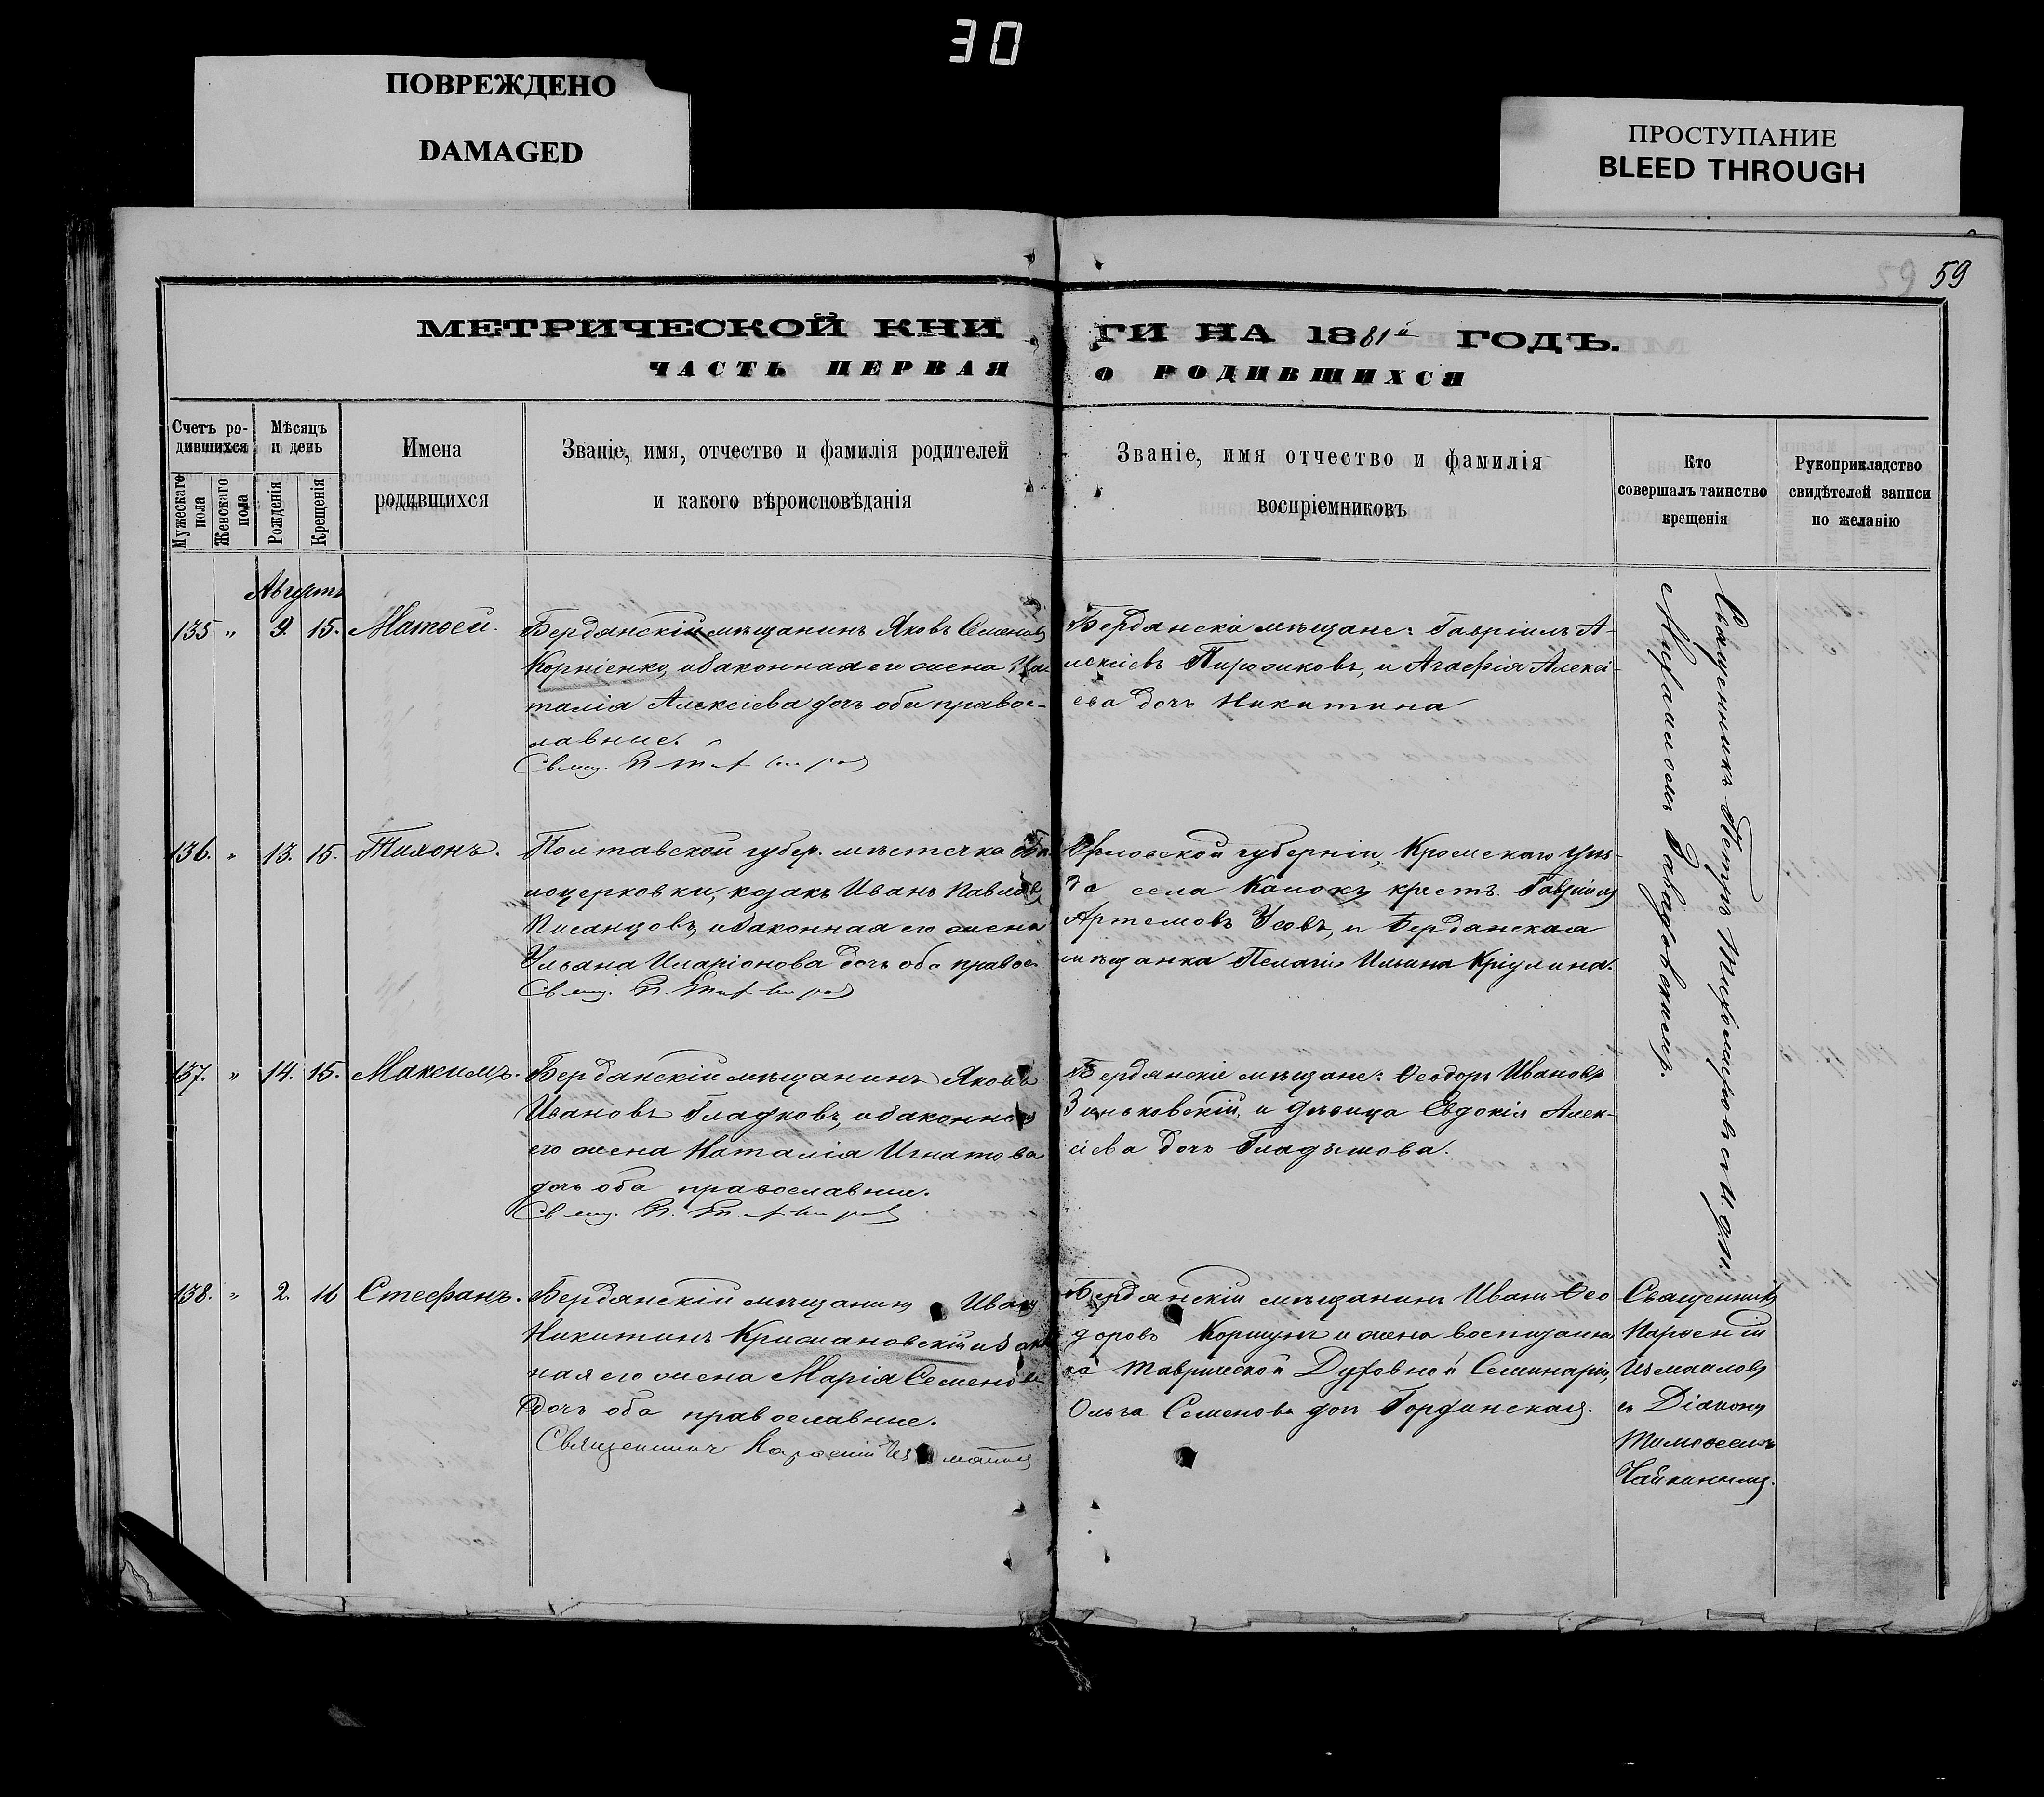 30
ПОВРЕЖДЕНО
DAMAGED
ПРОСТУПАНИЕ
BLEED THROUGH
59 59
МЕТРИЧЕСКОЙ КНИ
ГИ НА 1881й ГОДЪ.
ЧАСТЬ ПЕРВАЯ
О РОДИВШИХСЯ
Счетъ ро-
дившихся
Мужескаго пола
Женскаго пола
Мѣсяцъ
и день
Рожденія
Крещенія
Имена
родившихся
Званіе, имя, отчество и фамилія родителей
и какого вѣроисповѣданія
Званіе, имя отчество и фамилія
воспріемниковъ
Кто
совершалъ таинство
крещенія
Рукоприкладство
свидѣтелей записи
по желанію
Августъ
135 " 9. 15. Матѳей.
Бердянскій мѣщанинъ Яковъ Семеновъ
Корніенко, и законная его жена На-
талія Алексіева дочь оба правос-
лавные.
Свящ. П. Тихомировъ
Бердянскіе мѣщане: Гавріилъ А-
лексіевъ Пирожковъ, и Агафія Алексі-
ева дочь Никитина
136. " 13. 15. Тихонъ.
Полтавской губер. мѣстечка
, козакъ Иванъ Павловъ
Писанцовъ, и законная его жена
Ульяна Иларіонова дочь оба правос
Свящ. П. Тихомировъ
Орловской губерніи, Кромскаго уѣз-
да села крест. Гавріилъ
Артемовъ Усовъ, и Бердянская
мѣщанка Пелагія Ильина
137. " 14. 15. Максимъ.
Бердянскій мѣщанинъ Яковъ
Ивановъ Гладковъ, и законная
его жена Наталія Игнатова
дочь оба православные.
Свящ. П. Тихомировъ
Бердянскіе мѣщане: Ѳеодоръ Ивановъ
Зиньковскій, и дѣвица Евдокія Алек-
сіева дочь
Священникъ Петръ Тихомировъ съ И. д. п.
Михаиломъ Завадовскимъ.
138. " 2. 16 Стефанъ.
Бердянскій мѣщанинъ Иванъ
Никитинъ и закон
ная его жена Марія Семенова
дочь оба православные.
Священникъ Парѳеній Измаиловъ
Бердянскій мѣщанинъ Иванъ Ѳео
доровъ Коршунъ и жена воспитанни
ка Таврической Духовной Семинаріи,
Ольга Семенова дочь
Священникъ
Парѳеній
Измаиловъ
съ Діакономъ
Тимоѳеемъ
Чайкинымъ.